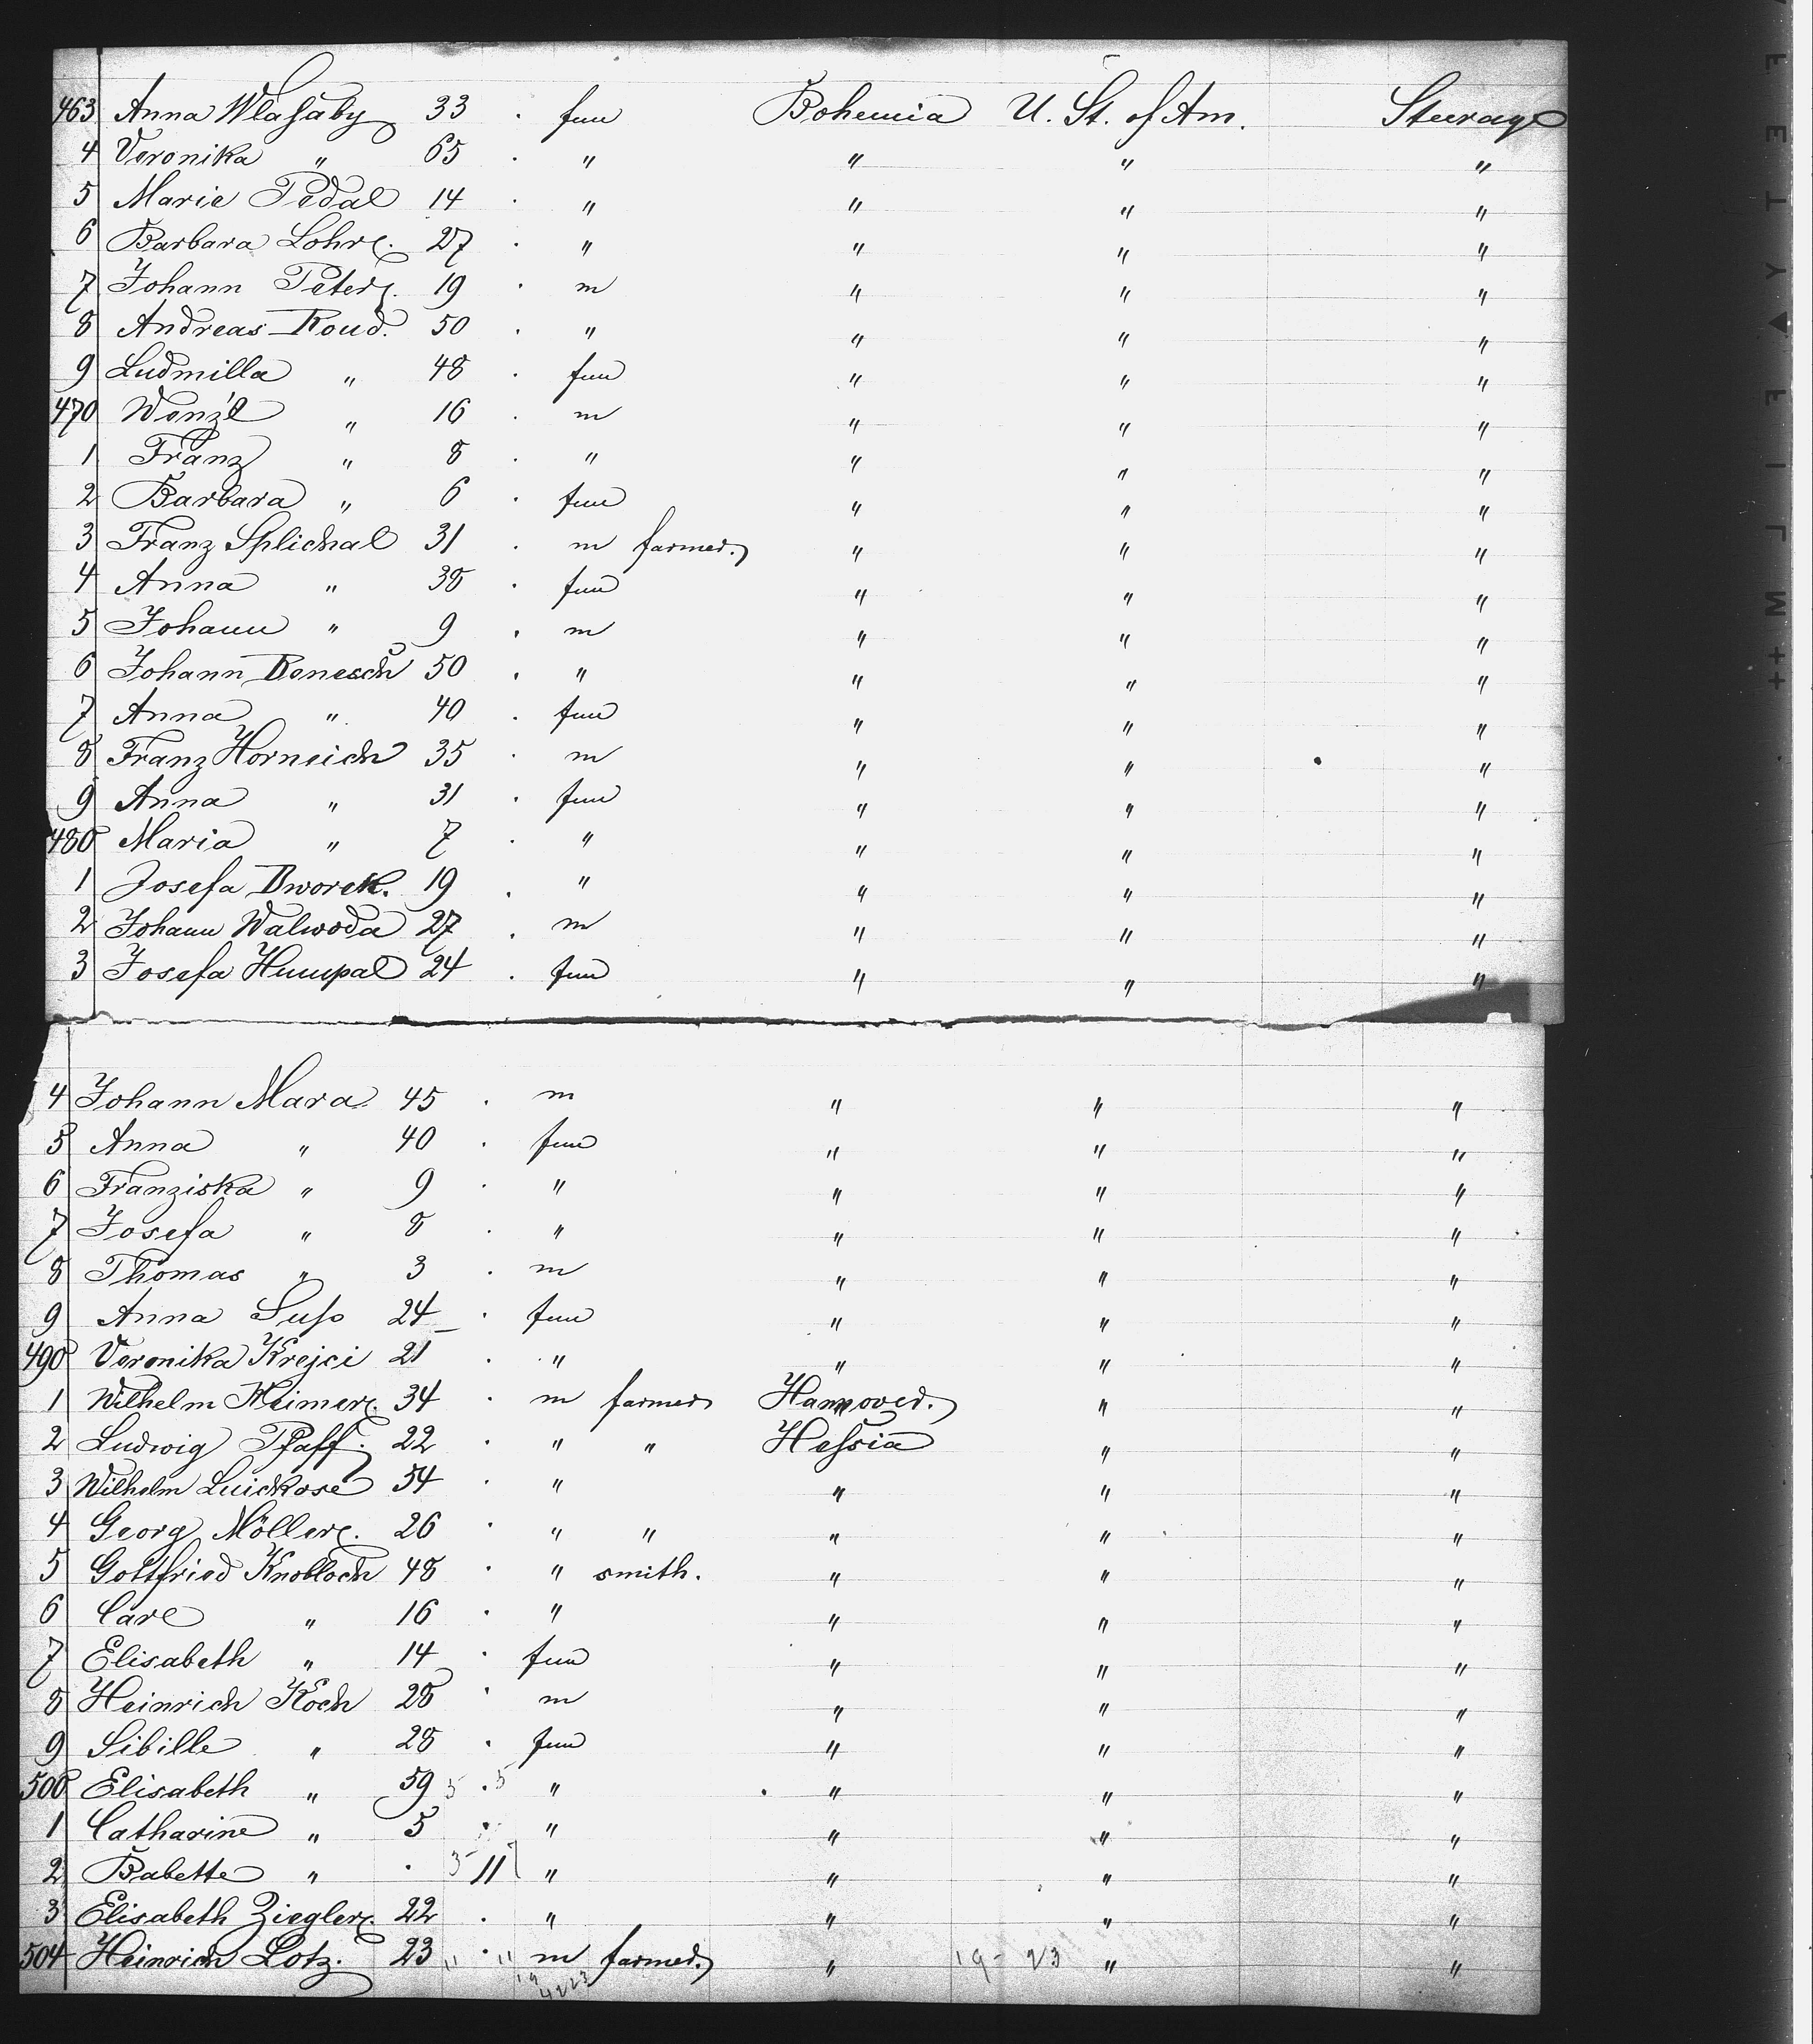 463 Anna Wlasaby 33 . fem Bohemia U. St. of Am. Steerage
4 Veronika " 65 . " " " "
5 Marie Pedal 14 . " " " "
6 Barbara Lohr. 27 . " " " "
7 Johann Peter. 19 . m " " "
8 Andreas Roud. 50 . " " " "
9 Ludmilla " 48 . fem " " "
470 Wenzl " 16 . m " " "
1 Franz " 8 . " " " "
2 Barbara " 6 . fem " " "
3 Franz Splichal 31 . m farmer. " " "
4 Anna " 38 . fem " " "
5 Johann " 9 . m " " "
6 Johann Benesch 50 . " " " "
7 Anna " 40 . fem " " "
8 Franz Horneich 35 . m " " "
9 Anna " 31 . fem " " "
480 Maria " 7 . " " " "
1 Josefa Dworek. 19 . " " " "
2 Johann Walwoda 27 . m " " "
3 Josefa Humpal 24 . fem " " "
4 Johann Mara 45 . m " " "
5 Anna " 40 . fem " " "
6 Franziska " 9 . " " " "
7 Josefa " 8 . " " " "
8 Thomas " 3 . m " " "
9 Anna Suss 24 . fem " " "
490 Veronika Krejci 21 . " " " "
1 Wilhelm Heimer. 34 . m farmer Hannover. " "
2 Ludwig Pfaff. 22 . " " Hessia " "
3 Wilhelm Luickose 54 . " " " "
4 Georg Möller. 26 . " " " " "
5 Gottfried Knobloch 48 . " smith. " " "
6 Carl " 16 . " " " "
7 Elisabeth " 14 . fem " " "
8 Heinrich Koch 28 . m " " "
9 Sibille " 28 . fem " " "
500 Elisabeth " 59 5 . 5 " " " "
1 Catharine " 5 . " " " "
2 Babette " . 11 " " " "
3 Elisabeth Ziegler. 22 . " " " "
504 Heinrich Lotz. 23 11 . 11 m farmer. " 19 - 23 " "
19 4223